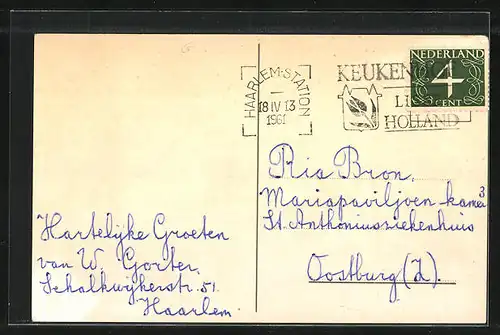 HAARLEM-STATION
18 IV 13
1961
KEUKEN
LI
HOLLAND
NEDERLAND
4
CENT
Ria Bron,
Mariapaviljoen kamer 3
St. Anthoniusziekenhuis
Oostburg (Z.)
Hartelijke Groeten
van W. Gorter,
Schalkwijkerstr. 51.
Haarlem.